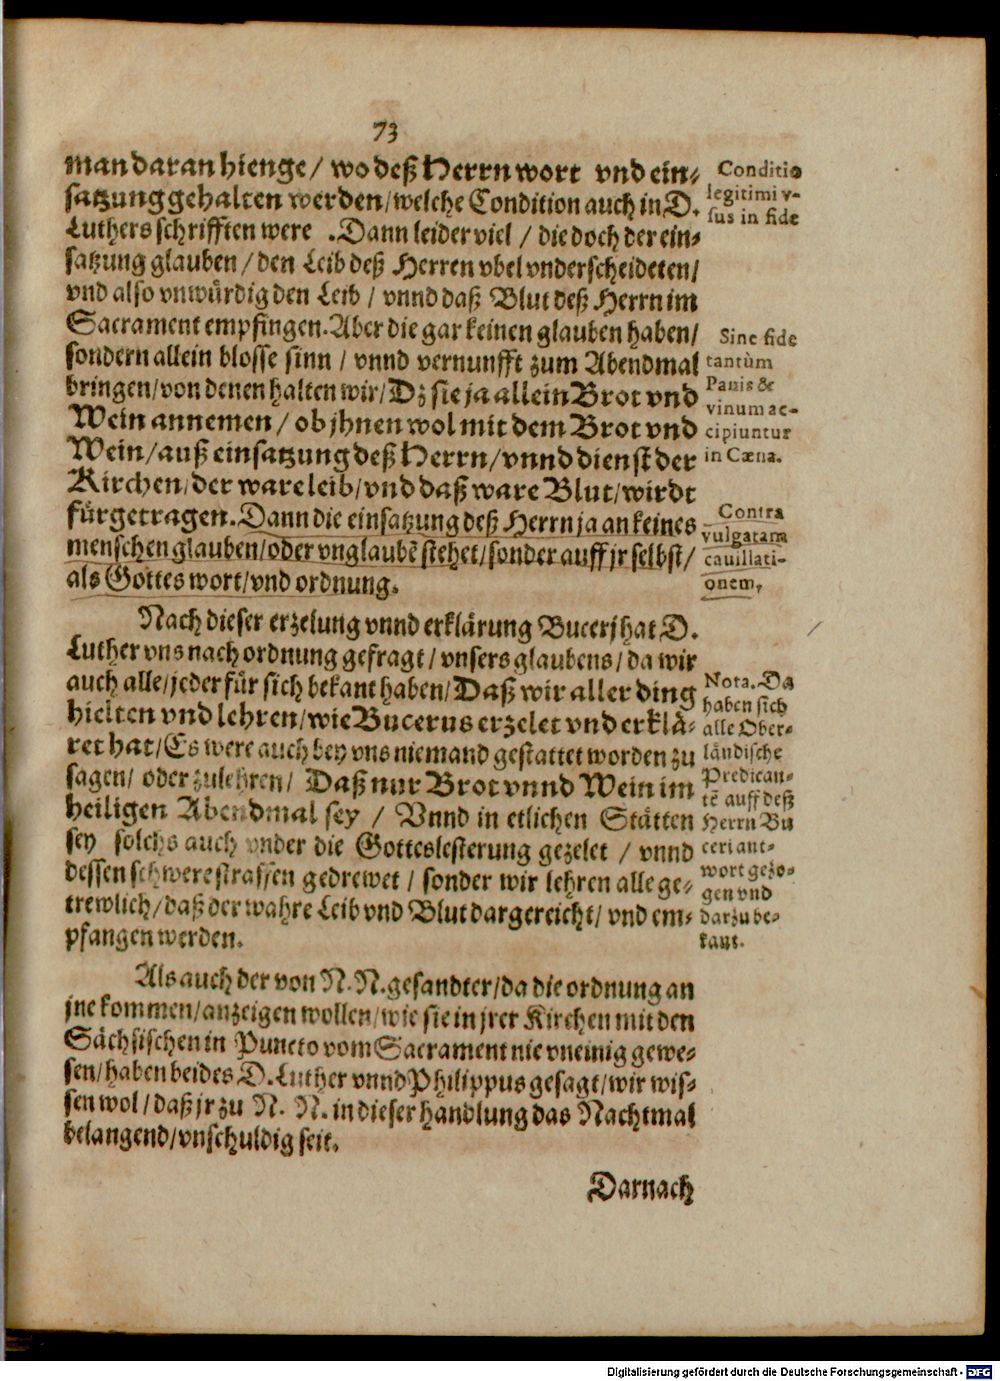 73
man daran hienge / wo deß Herrn wort vnd ein-
satzung gehalten werden / welche Condition auch in D.
Luthers schrifften were . Dann leider viel / die doch der ein-
satzung glauben / den Leib deß Herren vbel vnderscheideten /
vnd also vnwürdig den Leib / vnnd daß Blut deß Herrn im
Sacrament empfingen. Aber die gar keinen glauben haben /
sondern allein blosse sinn / vnnd vernunfft zum Abendmal
bringen / von denen halten wir / Dz sie ja allein Brot vnd
Wein annemen / ob jhnen wol mit dem Brot vnd
Wein / auß einsatzung deß Herrn / vnnd dienst der
Kirchen / der ware leib / vnd daß ware Blut / wirdt
fürgetragen. Dann die einsatzung deß Herrn ja an keines
menschen glauben / oder vnglaubẽ stehet / sonder auff jr selbst /
als Gottes wort / vnd ordnung.
Conditio
legitimi v-
sus in fide
Sine fide
tantùm
Panis &
vinum ac-
cipiuntur
in Cæna.
Contra
vulgatam
cauillati-
onem,
Nach dieser erzelung vnnd erklärung Bucerj hat D.
Luther vns nach ordnung gefragt / vnsers glaubens / da wir
auch alle / jeder für sich bekant haben / Daß wir aller ding
hielten vnd lehren / wie Bucerus erzelet vnd erklä-
ret hat / Es were auch bey vns niemand gestattet worden zu
sagen / oder zulehren / Daß nur Brot vnnd Wein im
heiligen Abendmal sey / Vnnd in etlichen Stätten
sey solchs auch vnder die Gotteslesterung gezelet / vnnd
dessen schwere straffen gedrewet / sonder wir lehren alle ge-
trewlich / daß der wahre Leib vnd Blut dargereicht / vnd em-
pfangen werden.
Nota. Da
haben sich
alle Ober-
ländische
Predican-
tẽ auff deß
Herrn Bu
ceri ant-
wort gezo-
gen vnd
darzu be-
kant.
Als auch der von N. N. gesandter / da die ordnung an
jne kommen / anzeigen wollen / wie sie in jrer Kirchen mit den
Sächsischen in Puncto vom Sacrament nie vneinig gewe-
sen / haben beides D. Luther vnnd Philippus gesagt / wir wis-
sen wol / daß jr zu N. N. in dieser handlung das Nachtmal
belangend / vnschuldig seit.
Darnach
Digitalisierung gefördert durch die Deutsche Forschungsgemeinschaft - DFG